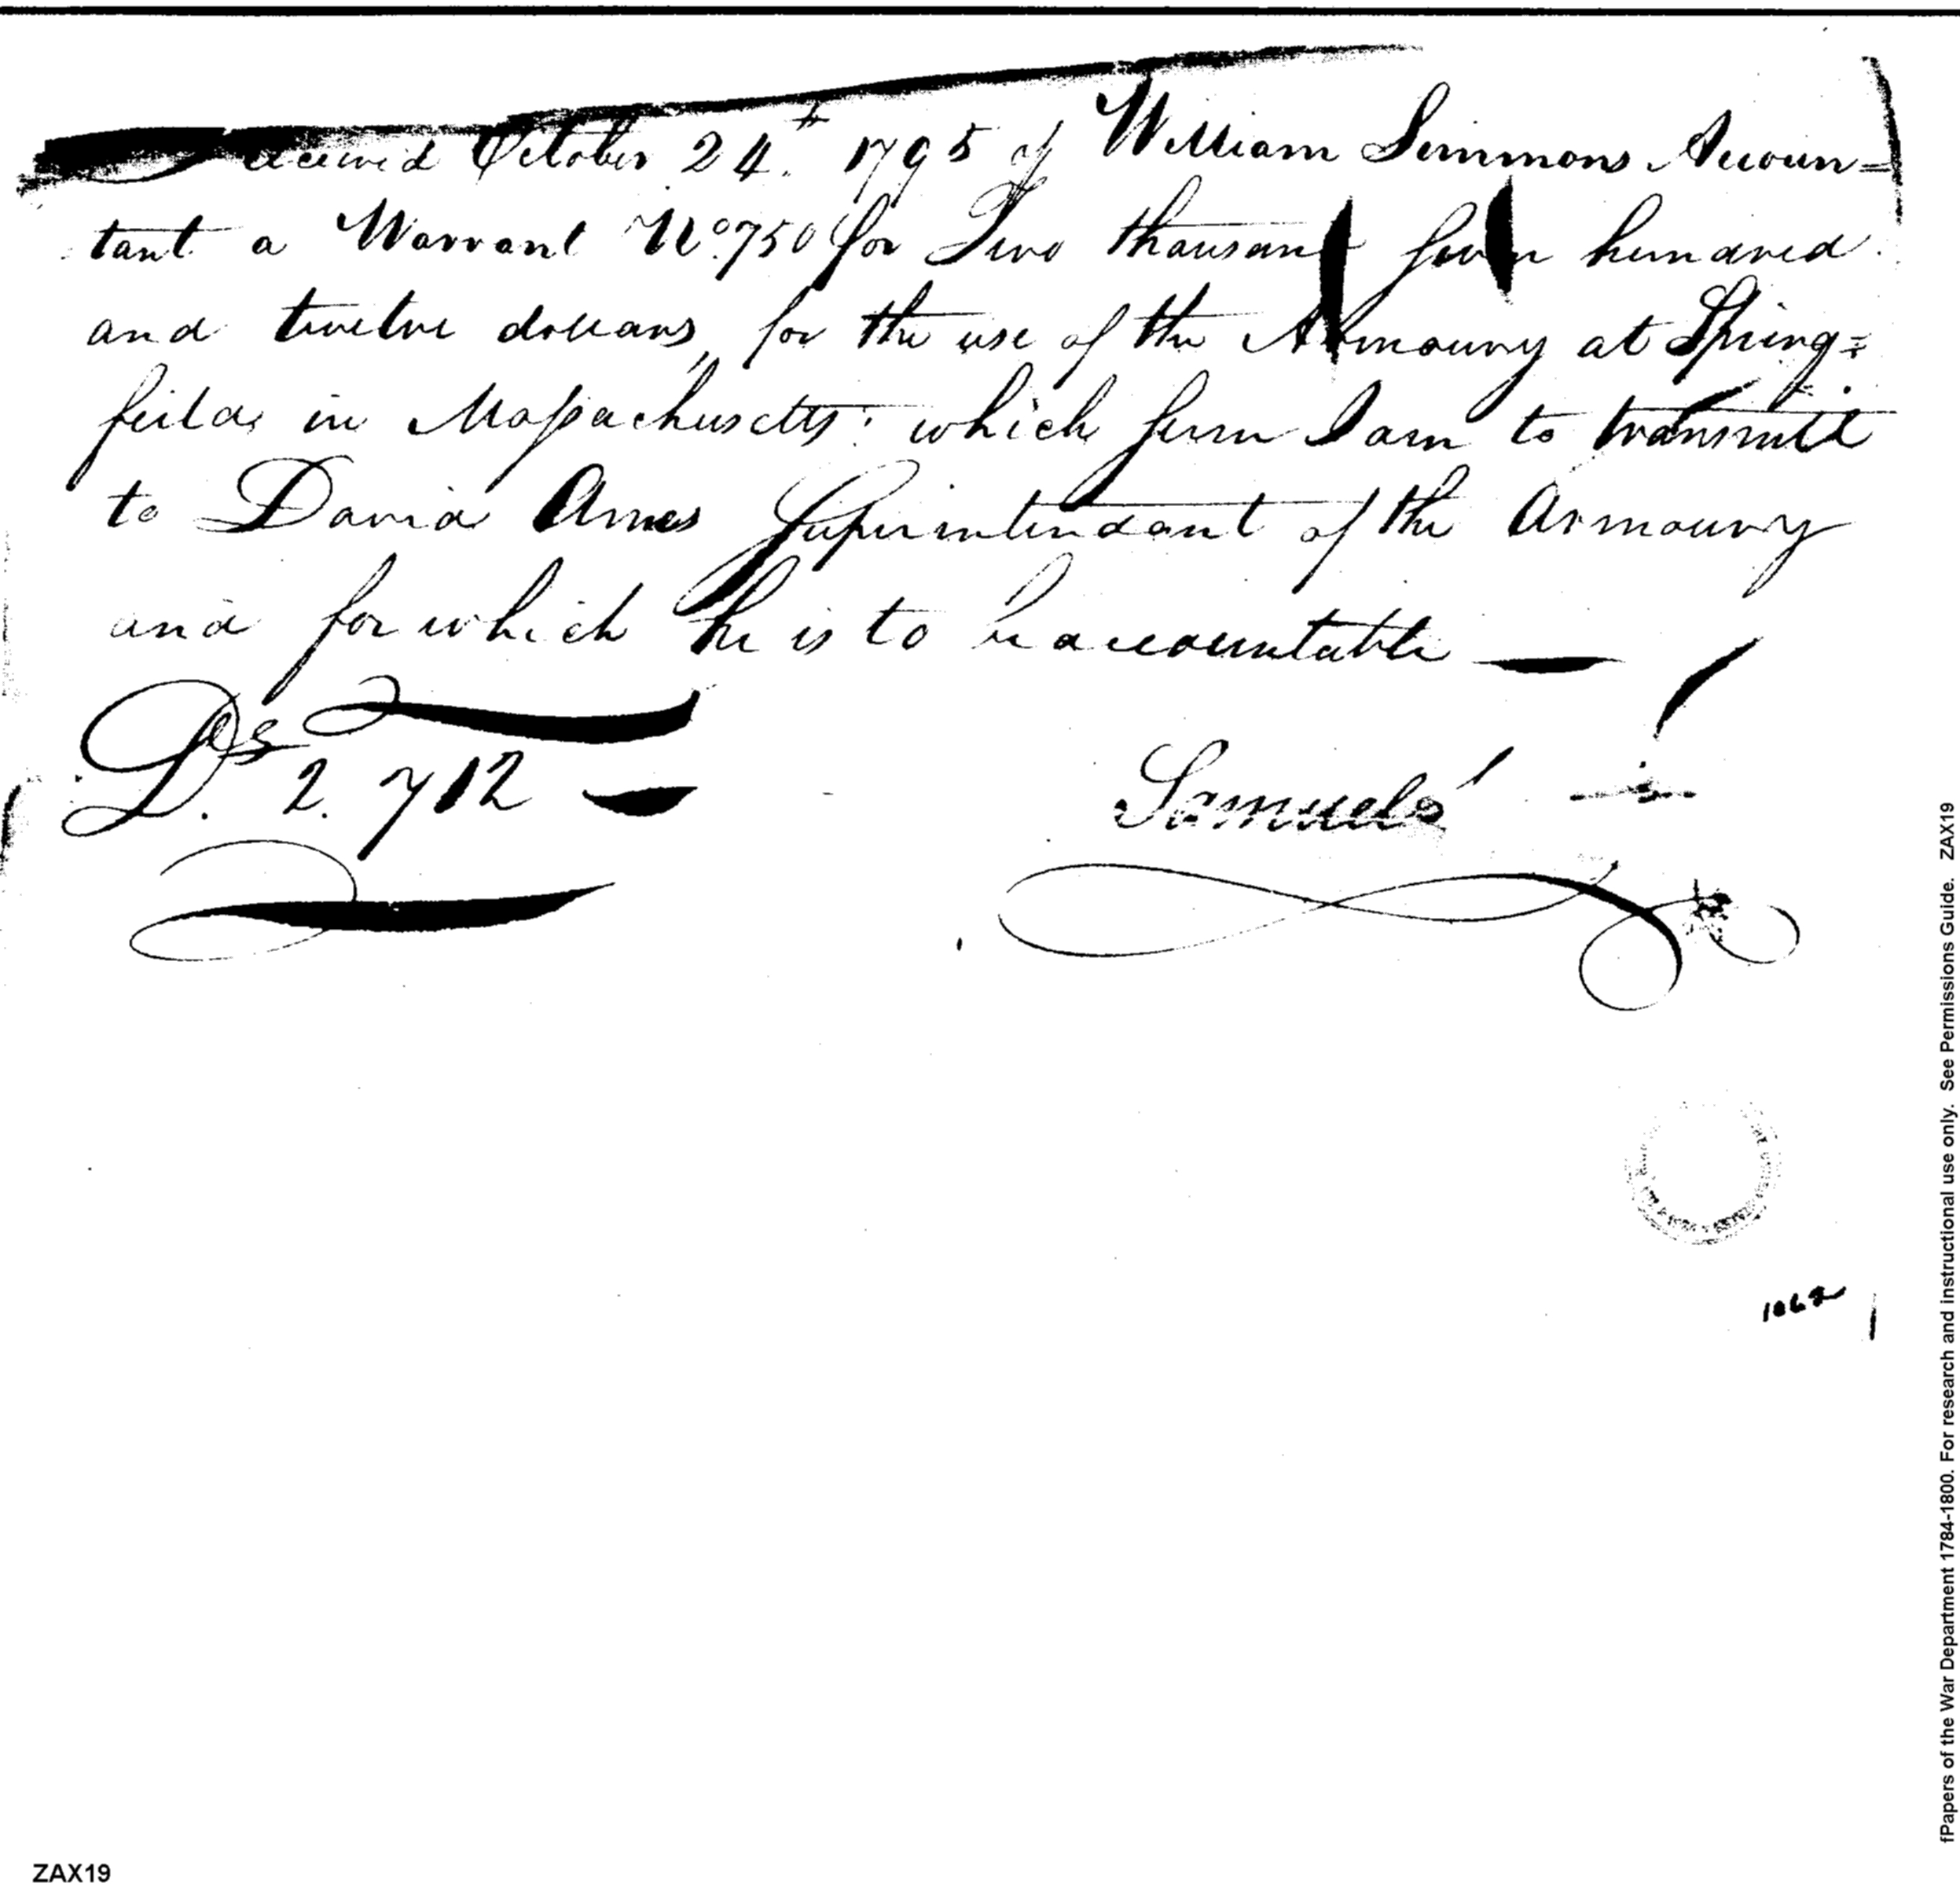 Received October 24.t 1795 of William Simmons Accoun=
tant a Warrant No. 750 for Two thousand seven hundred
and twelve dollars, for the use of the Armoury at Spring=
feild, in Massachusetts: which sum I am to transmitt
to David Ames Superintendant of the Armoury
and for which he is to be accountable —
Ds. 2.712 —
Samuel
1062
fPapers of the War Department 1784-1800. For research and instructional use only. See Permissions Guide. ZAX19
ZAX19